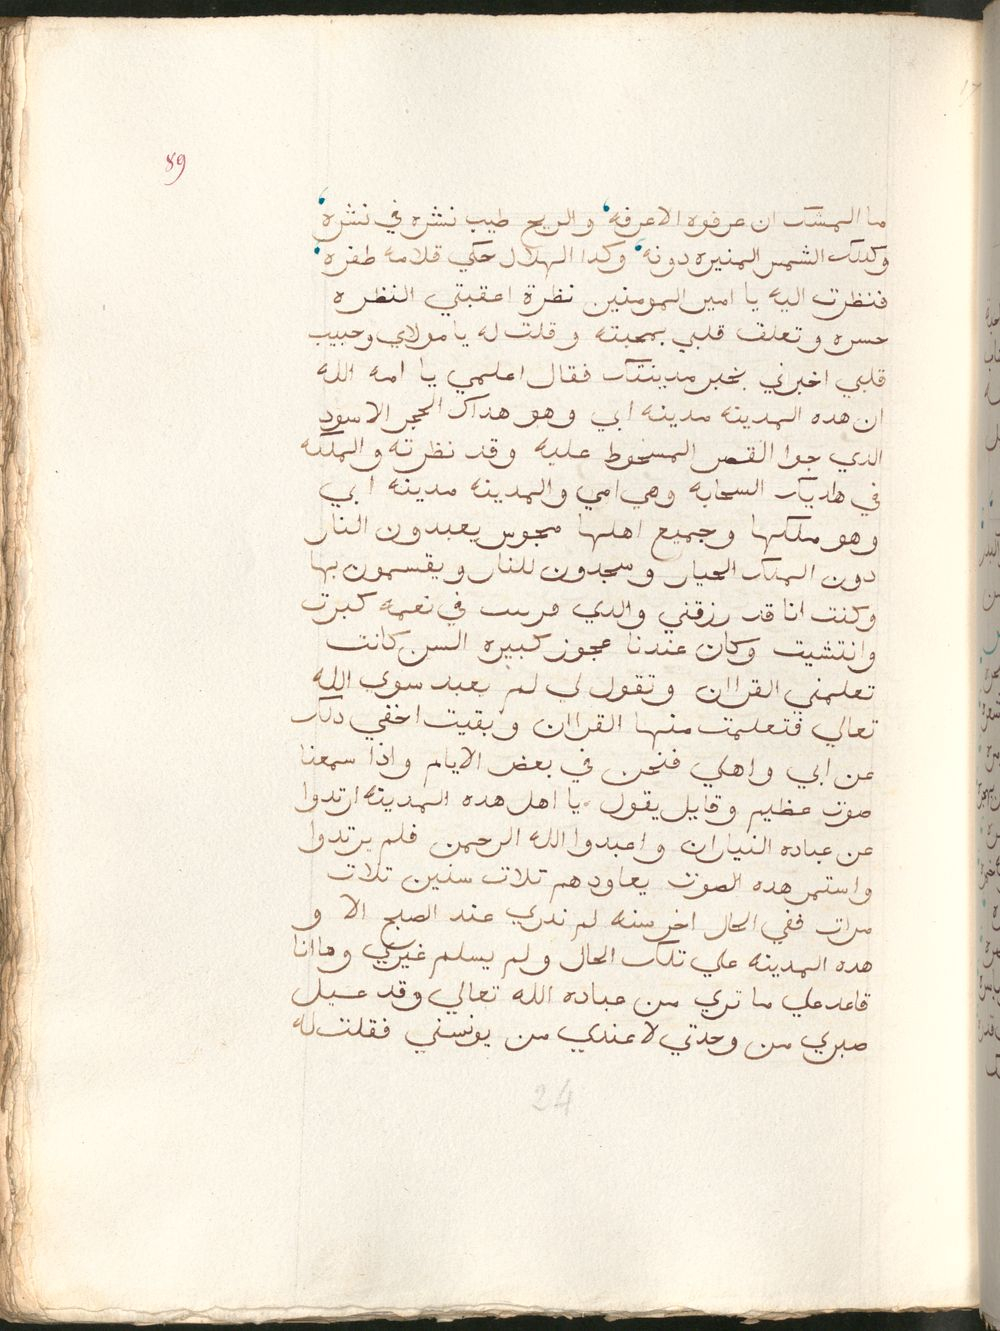 89
ما المشك ان عرفوه الاعرفه والريح طيب نشره في نشره
وكدلك الشمس المنيره دونه وكدا الهلال حكي قلامه طفره
فنظرت اليه يا امير المومنين نظرة اعقبتي النظره
حسره وتعلف قلبي بمحبته وقلت له يا مولاي وحبيب
قلبي اخبرني بخبر مدينتك فقال اعلمي يا امه الله
ان هده المدينه مدينه ابي وهو هذاك الحجر الاسود
الذي جوا القصر المسخوط عليه وقد نظرته والملكه
في السحابه وهي امي والمدينه مدينه ابي
وهو ملكها وجميع اهلها مجوس يعبدون النار
دون الملك الجبار وسجدون للنار ويقسمون بها
وكنت انا قد رزقني والدي في نعمه كبرت
وانتشيت وكان عندنا عجوز كبيره السن كانت
تعلمني القراان وتقول لي لم يعبد سوي الله
تعالي فتعلمت منها القراان وبقيت اخفي دلك
عن ابي واهلي فنحن في بعض الايام واذا سمعنا
صوت عظيم وقايل يقول يا اهل هده المدينه ارتدوا
عن عباده النياران واعبدوا الله الرحمن فلم يرتدوا
واستمر هده الصوت يعاودهم تلات سنين تلات
مرات ففي الحال اخر سنه لم ندري عند الصبح الا و
هده المدينه علي تلك الحال ولم يسلم غيري وهاانا
قاعد علي ما تري من عباده الله تعالي وقد عيل
صبري من وحدتي لا عندي من يونسني فقلت له
24